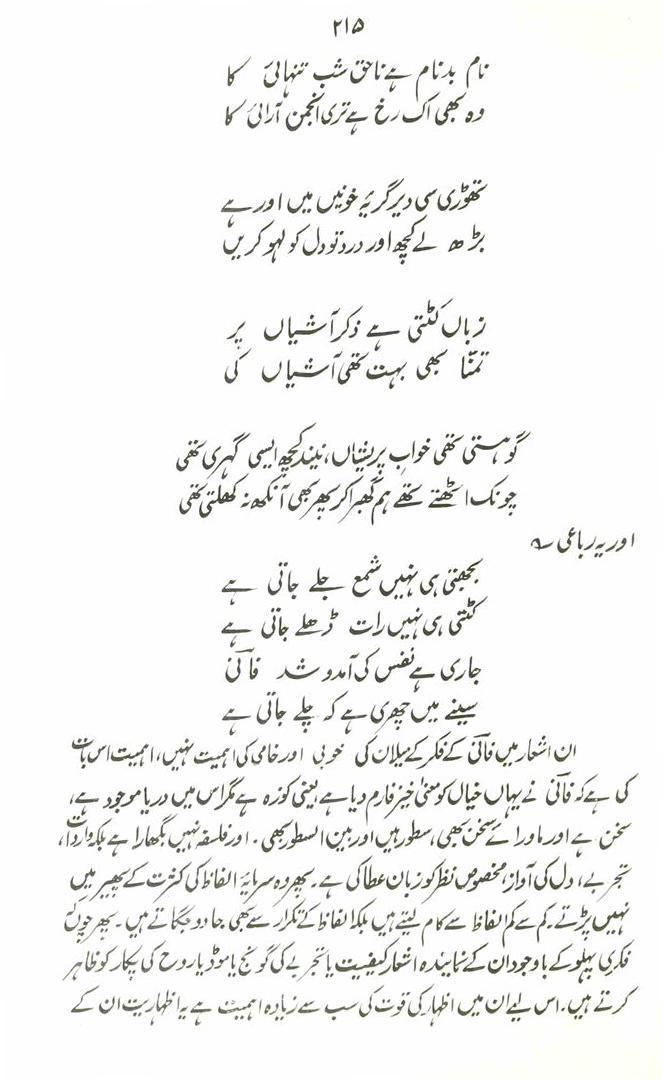 ۲۱۵
نام بدنام ہے ناحق شب تنہائی کا
وہ بھی اک رخ ہے تری انجمن آرائی کا
تھوڑی سی دیر گریۂ خونیں میں اور ہے
بڑھ لے کچھ اور درد تو دل کو لہو کریں
زباں کٹتی ہے ذکر آشیاں پر
تمنّا بھی بہت تھی آشیاں کی
گو ہستی تھی خواب پریشاں، نیند کچھ ایسی گہری تھی
چونک اٹھتے تھے ہم گھبرا کر پھر بھی آنکھ نہ کھلتی تھی
اور یہ رباعی ؎
بجھتی ہی نہیں شمع جلے جاتی ہے
کٹتی ہی نہیں رات ڈھلے جاتی ہے
جاری ہے نفس کی آمد و شد فانی
سینے میں چھری ہے کہ چلے جاتی ہے
ان اشعار میں فانی کے فکر کے میلان کی خوبی اور خامی کی اہمیت نہیں، اہمیت اس بات
کی ہے کہ فانی نے یہاں خیال کو معنی خیز فارم دیا ہے یعنی کوزہ ہے مگر اس میں دریا موجود ہے،
سخن ہے اور ماورائے سخن بھی، سطور ہیں اور بین السطور بھی۔ اور فلسفہ نہیں بگھارا ہے بلکہ واردات،
تجربے، دل کی آواز، مخصوص نظر کو زبان عطا کی ہے۔ پھر وہ سرمایۂ الفاظ کی کثرت کے پھیر میں
نہیں پڑتے۔ کم سے کم الفاظ سے کام لیتے ہیں بلکہ الفاظ کے تکرار سے بھی جادو جگاتے ہیں۔ پھر جوں کہ
فکری پہلو کے باوجود ان کے نمایندہ اشعار کیفیت یا تجربے کی گونج یا موڈ یا روح کی پکار کو ظاہر
کرتے ہیں۔ اس لیے ان میں اظہار کی قوت کی سب سے زیادہ اہمیت ہے یہ اظہاریت ان کے